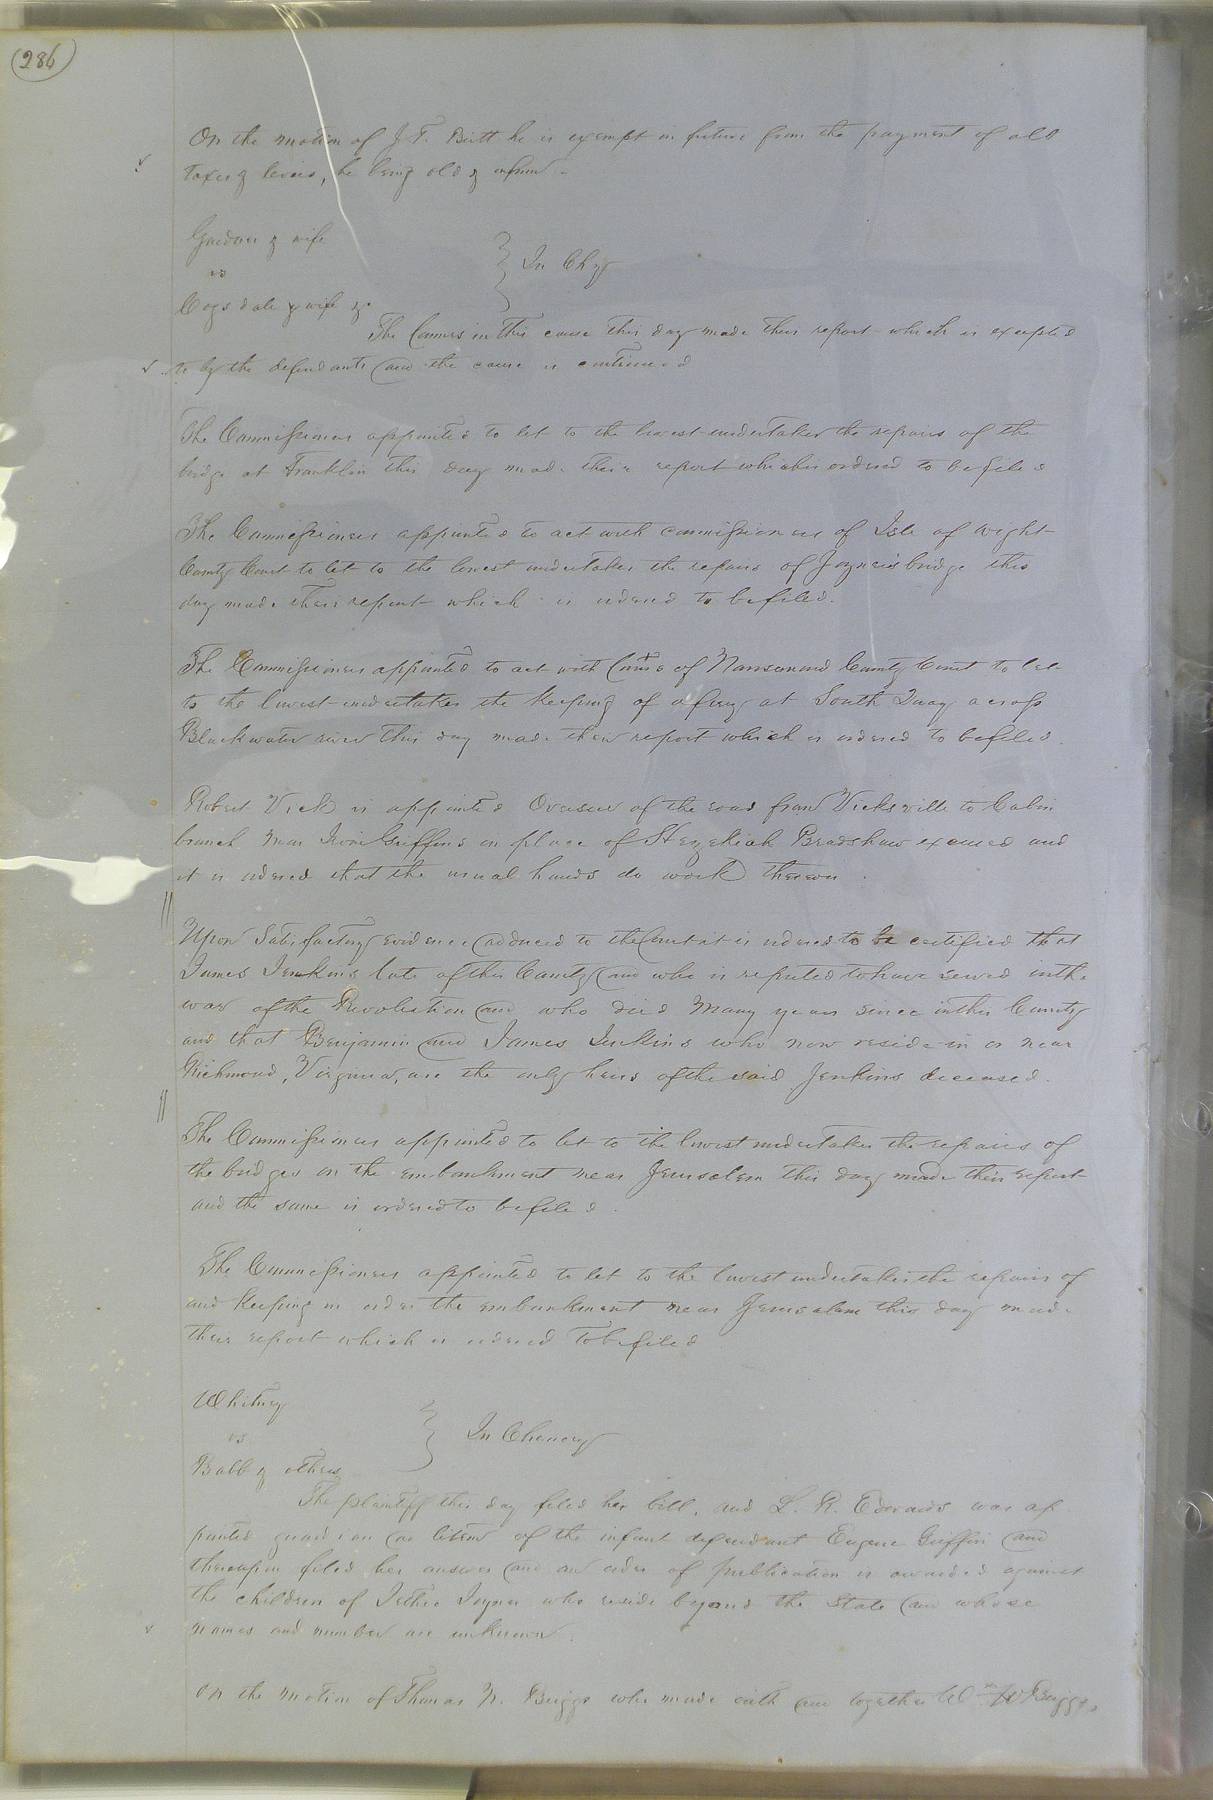 (286)
On the motion of J. T. Britt he is exempt in future from the payment of all
taxes & levies, he being old & infirm -
Gardner & wife
vs
Cogsdale & wife &c
} In Chy
The Commrs in this cause this day made their report which is excepted
to by the defendants and the cause is continued
The Commissioners appointed to let to the lowest undertaker the repairs of the
bridge at Franklin this day made their report which is ordered to be filed
The Commissioners appointed to act with commissioners of Isle of Wight
County Court to let to the lowest undertaker the repairs of Joyner's bridge this
day made their report which is ordered to be filed.
The Commissioners appointed to act with Comrs of Nansemond County Court to let
to the lowest undertaker the keeping of a ferry at South Quay across
Blackwater river this day made their report which is ordered to be filed.
Robert Vick is appointed Overseer of the road from Vicksville to Cabin
branch near Griffins in place of Hezekiah Bradshaw excused and
it is ordered that the usual hands do work thereon.
Upon Satisfactory evidence adduced to the Court it is ordered to be certified that
James Jenkins late of this County and who is reputed to have served in the
war of the Revolution and who died Many years since in this County
and that Benjamin and James Jenkins who now reside in or near
Richmond, Virginia, are the only heirs of the said Jenkins deceased.
The Commissioners appointed to let to the lowest undertaker the repairs of
the bridges on the embankment near Jerusalem this day made their report
and the same is ordered to be filed.
The Commissioners appointed to let to the lowest undertaker the repairs of
and keeping in order the embankment near Jerusalem this day made
their report which is ordered to be filed
Whitney
vs
Babb & others
} In Chancery
The plaintiff this day filed her bill, and L. R. Edwards was ap
pointed guardian ad litem of the infant defendant Eugene Griffin and
thereupon filed her answer and an order of publication is awarded against
the children of Joyner who reside beyond the State and whose
names and number are unknown.
On the motion of Thomas N. Briggs who made oath and together Wm W Briggs